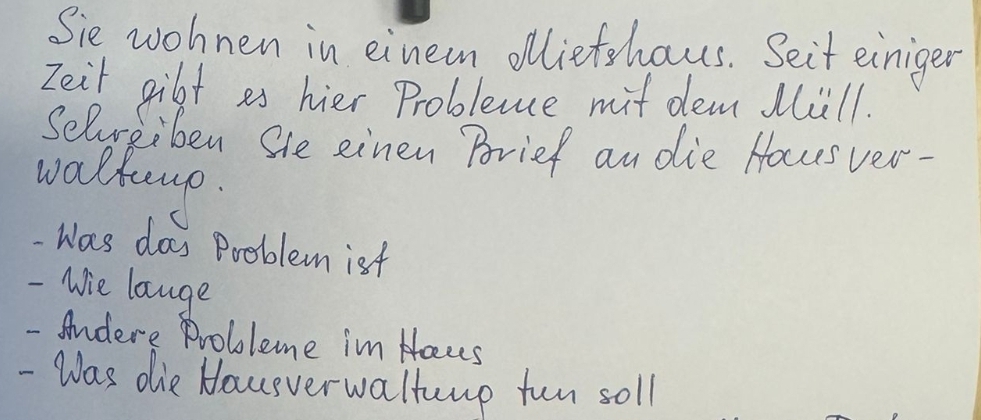 Sie wohnen in einem Mietshaus. Seit einiger
Zeit gibt es hier Probleme mit dem Müll.
Schreiben Sie einen Brief an die Hausver-
waltung.
- Was das Problem ist
- Wie lange
- Andere Probleme im Haus
- Was die Hausverwaltung tun soll